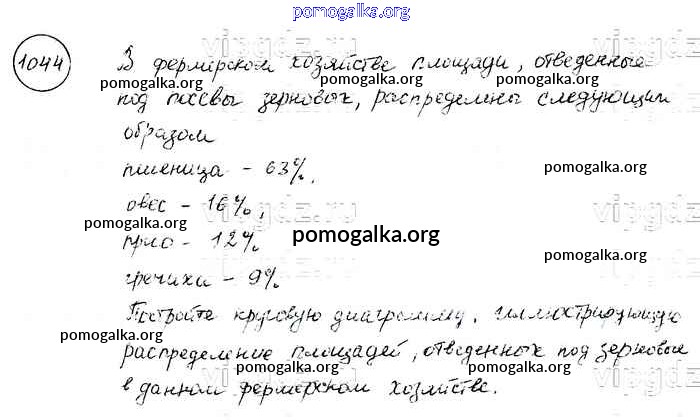 pomogalka.org
1044 В фермерском хозяйстве площади, отведенные
pomogalka.org pomogalka.org
под посевы зерновых, распределены следующим
образом
пшеница - 63%, pomogalka.org
овес - 16%,
pomogalka.org
просо - 12% pomogalka.org
pomogalka.org
гречиха - 9%
Постройте круговую диаграмму, иллюстрирующую
pomogalka.org
распределение площадей, отведенных под зерновые
pomogalka.org
в данном фермерском хозяйстве.
pomogalka.org